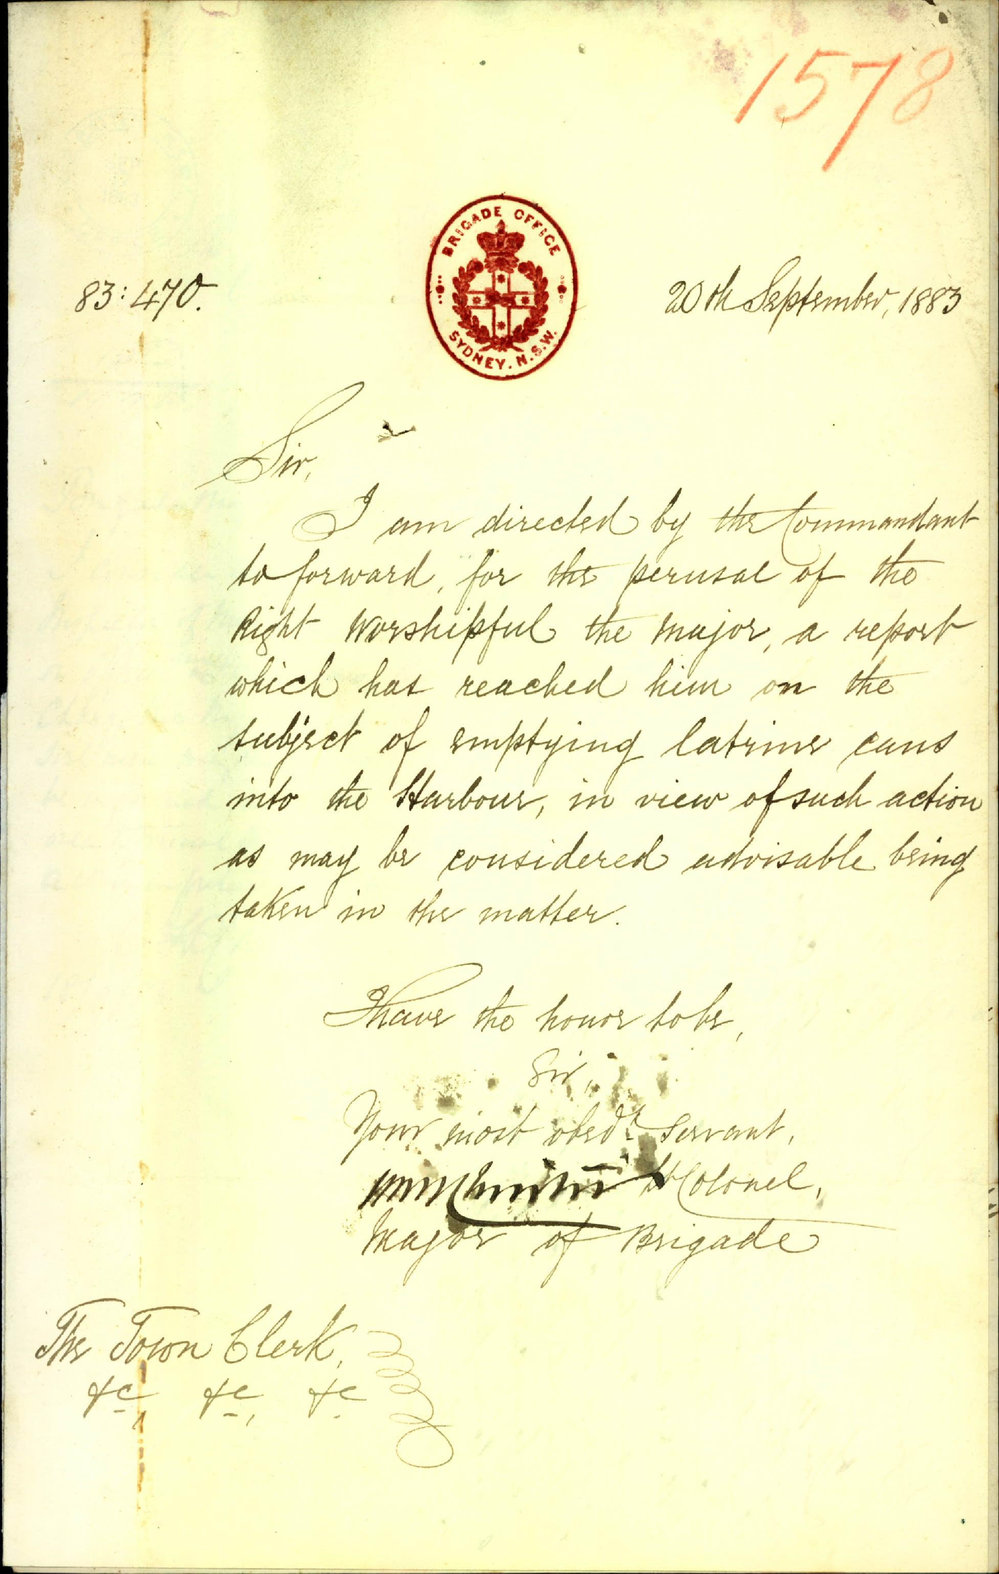 1578
BRIGADE OFFICE
SYDNEY. N.S.W.
83:470.
20th September, 1883
Sir,
I am directed by the Commandant
to forward, for the perusal of the
Right Worshipful the Mayor, a report
which has reached him on the
subject of emptying latrine cans
into the Harbour, in view of such action
as may be considered advisable being
taken in the matter.
I have the honor to be,
Sir,
Your most obedt. servant,
Lt Colonel,
Major of Brigade
The Town Clerk,
&c, &c, &c